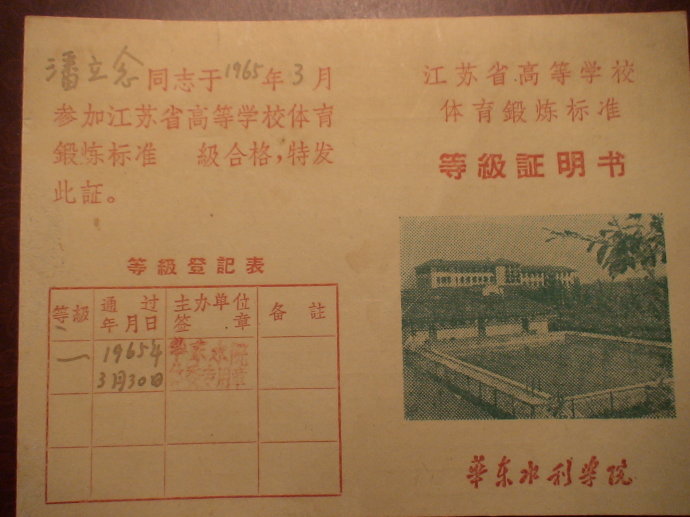 潘立念同志于1965年3月
参加江苏省高等学校体育
鍛炼标准 級合格,特发
此証。
等級登記表
等級 通过年月日 主办单位签章 备註
一 1965年3月30日
江苏省高等学校
体育鍛炼标准
等級証明书
華东水利学院